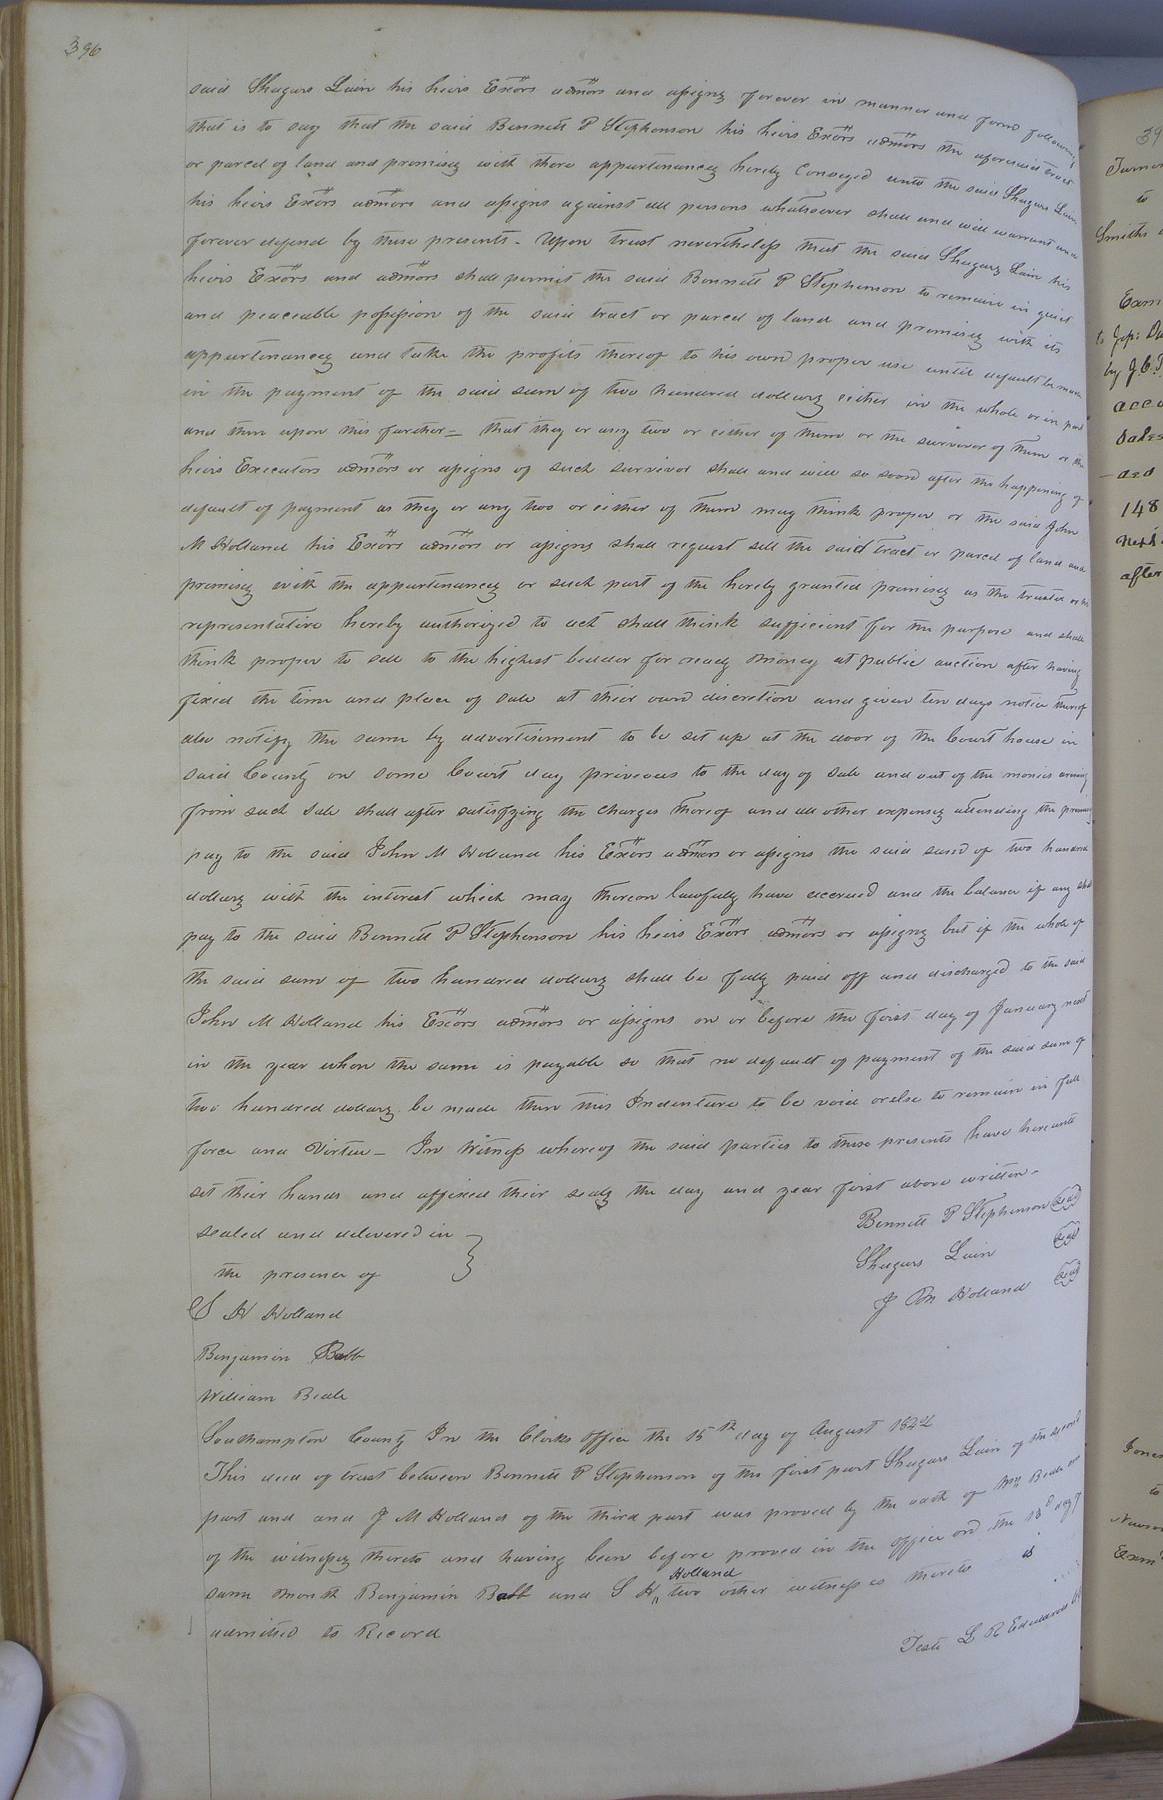 396
said Shugars Lain his heirs Exors admors and assigns forever in manner and form following
that is to say that the said Bennett P Stephenson his heirs Exors admors the aforesaid tract
or parcel of land and premises with there appurtenances hereby Conveyed unto the said Shugars Lain
his heirs Exors admors and assigns against all persons whatsoever shall and will warrant and
forever defend by these presents - Upon trust nevertheless that the said Shugars Lain his
heirs Exors and admors shall permit the said Bennett P Stephenson to remain in quiet
and peaceable possession of the said tract or parcel of land and premises with its
appurtenances and take the profits thereof to his own proper use until default be made
in the payment of the said sum of two hundred dollars either in the whole or in part
and then upon this further - that they or any two or either of them or the survivor of them or the
heirs Executors admors or assigns of such survivor shall and will so soon after the happening of
default of payment as they or any two or either of them may think proper or the said John
M Holland his Exors admors or assigns shall request sell the said tract or parcel of land and
premises with the appurtenances or such part of the hereby granted premises as the trustee or his
representative hereby authorized to act shall think sufficient for the purpose and shall
think proper to sell to the highest bidder for ready money at public auction after having
fixed the time and place of sale at their own discretion and given ten days notice thereof
also notify the same by advertisement to be set up at the door of the Court house in
said County on some Court day previous to the day of sale and out of the monies arising
from such sale shall after satisfying the charges thereof and all other expenses attending the premises
pay to the said John M Holland his Exors admors or assigns the said sum of two hundred
dollars with the interest which may thereon lawfully have accrued and the balance if any shall
pay to the said Bennett P Stephenson his heirs Exors admors or assigns but if the whole of
the said sum of two hundred dollars shall be fully paid off and discharged to the said
John M Holland his Exors admors or assigns on or before the first day of January next
in the year when the same is payable so that no default of payment of the said sum of
two hundred dollars be made then this Indenture to be void or else to remain in full
force and Virtue - In Witness whereof the said parties to these presents have hereunto
set their hands and affixed their seals the day and year first above written -
sealed and delivered in
the presence of
Bennett P Stephenson Seal
Shugars Lain Seal
J M Holland Seal
S H Holland
Benjamin Babb
William Beale
Southampton County In the Clerks office the 15th day of August 1842
This deed of trust between Bennett P Stephenson of the first part Shugars Lain of the second
part and and J M Holland of the third part was proved by the oath of Wm Beale one
of the witnesses thereto and having been before proved in the office on the 13d day of
same month Benjamin Babb and S H Holland two other witnesses thereto is
admitted to Record
Teste L R Edwards
39
Turner
to
Smiths
Exam
to Jos:
by J.C.
148
after
Jones
to
Exm